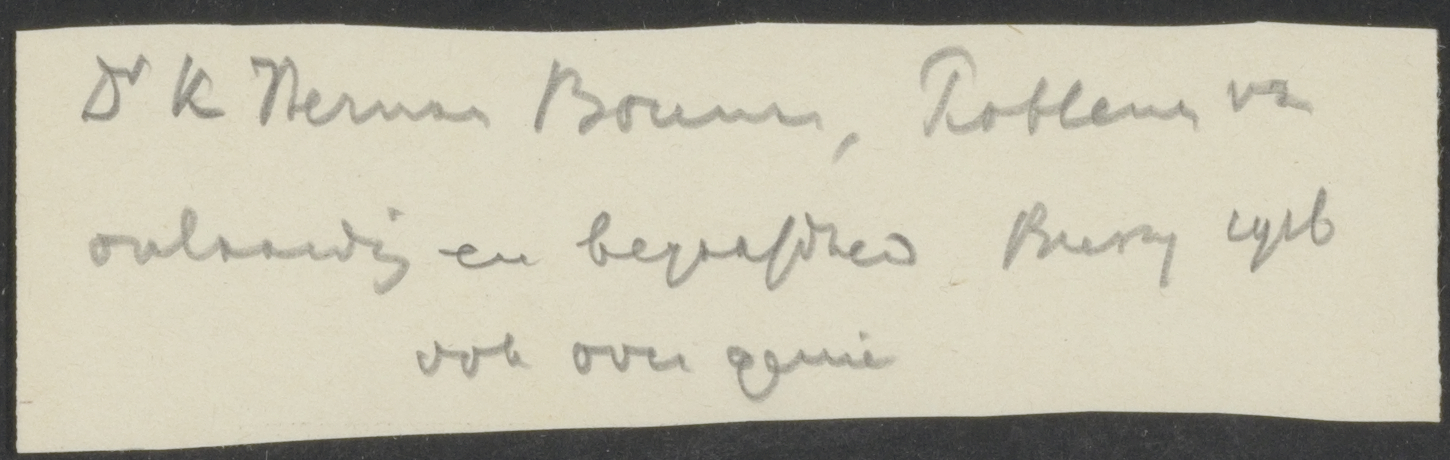 Dr K Herman Bouman, Problemen van
onvolwaardig en begaafdheid Bussy 1916
ook over genie